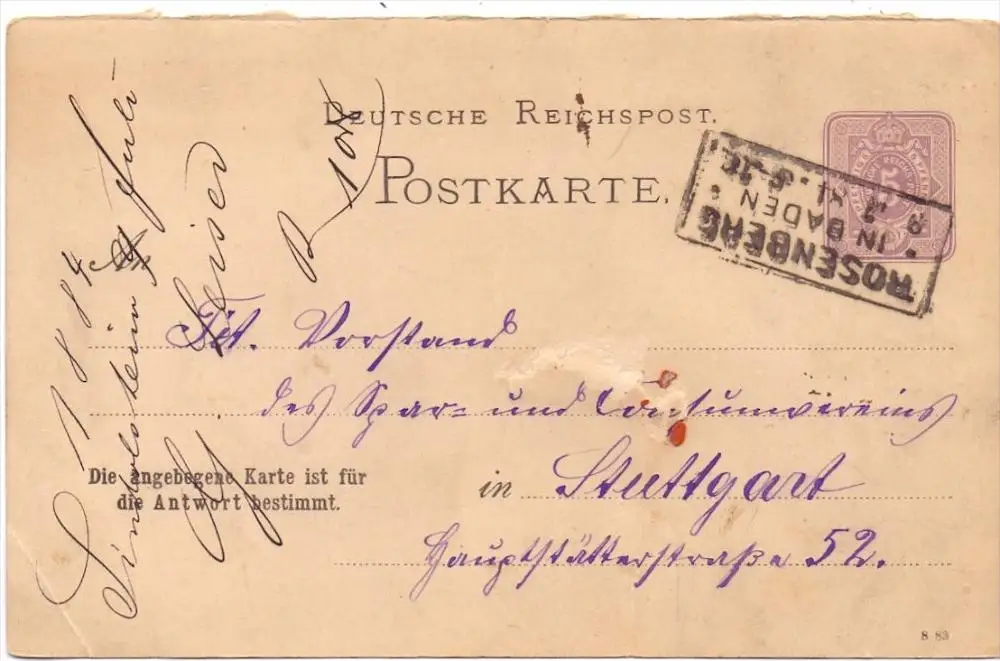 DEUTSCHE REICHSPOST.
POSTKARTE.
ROSENBERG
IN BADEN
Tit. Vorstand
des Spar- und Consumvereins
Die angebogene Karte ist für
die Antwort bestimmt.
in Stuttgart
Hauptstätterstraße 52.
8 83
1884
Geiser
B 108